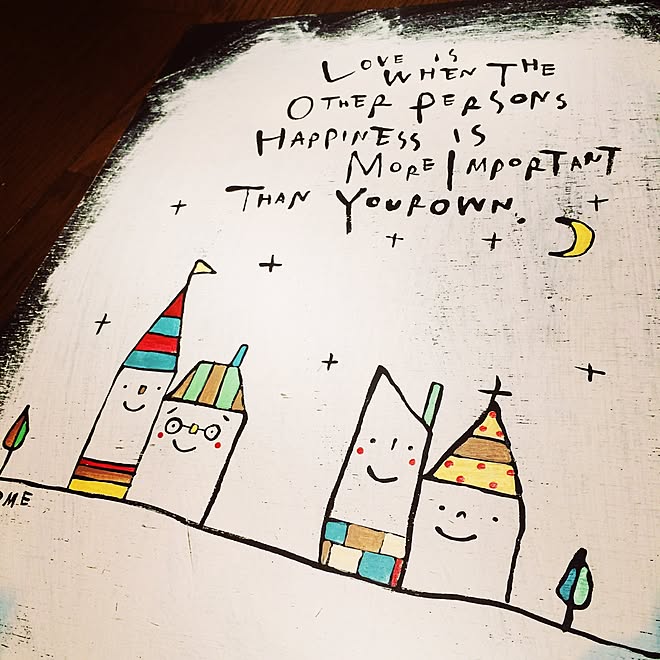 LOVE IS
WHEN THE
OTHER PERSONS
HAPPINESS IS
MORE IMPORTANT
THAN YOUR OWN.